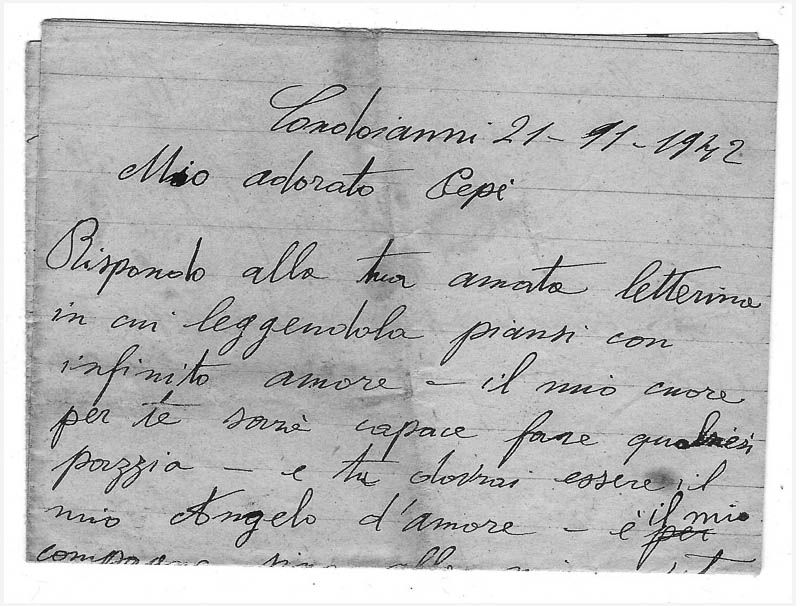 Londoianni 21-11-1942
Mio adorato Pepi
Rispondo alla tua amata letterina
in cui leggendola piansi con
infinito amore - il mio cuore
per te sarà capace fare qualsiesi
pazzia - e tu dovrai essere il
mio Angelo d'amore - è per il mio